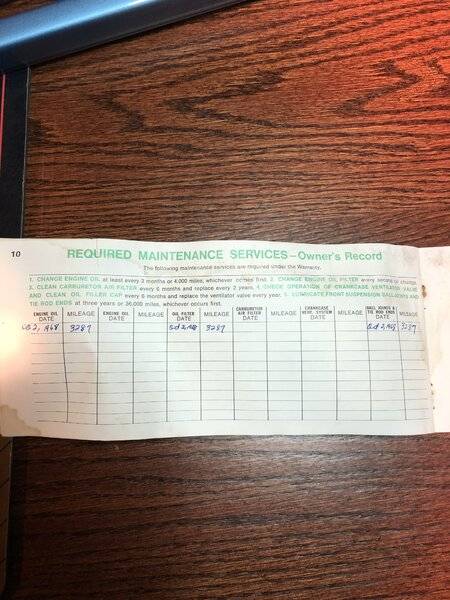 10
REQUIRED MAINTENANCE SERVICES – Owner's Record
The following maintenance services are required under the Warranty.
1. CHANGE ENGINE OIL at least every 3 months or 4,000 miles, whichever occurs first. 2. CHANGE ENGINE OIL FILTER every second oil change.
3. CLEAN CARBURETOR AIR FILTER every 6 months and replace every 2 years. 4. CHECK OPERATION OF CRANKCASE VENTILATOR VALVE
AND CLEAN OIL FILLER CAP every 6 months and replace the ventilator valve every year. 5. LUBRICATE FRONT SUSPENSION BALL JOINTS AND
TIE ROD ENDS at three years or 36,000 miles, whichever occurs first.
ENGINE OIL DATE MILEAGE ENGINE OIL DATE MILEAGE OIL FILTER DATE MILEAGE CARBURETOR AIR FILTER DATE MILEAGE CRANKCASE VENT. SYSTEM DATE MILEAGE BALL JOINTS & TIE ROD ENDS DATE MILEAGE
2, 1968 3287 2, 1968 3287 2, 1968 3287